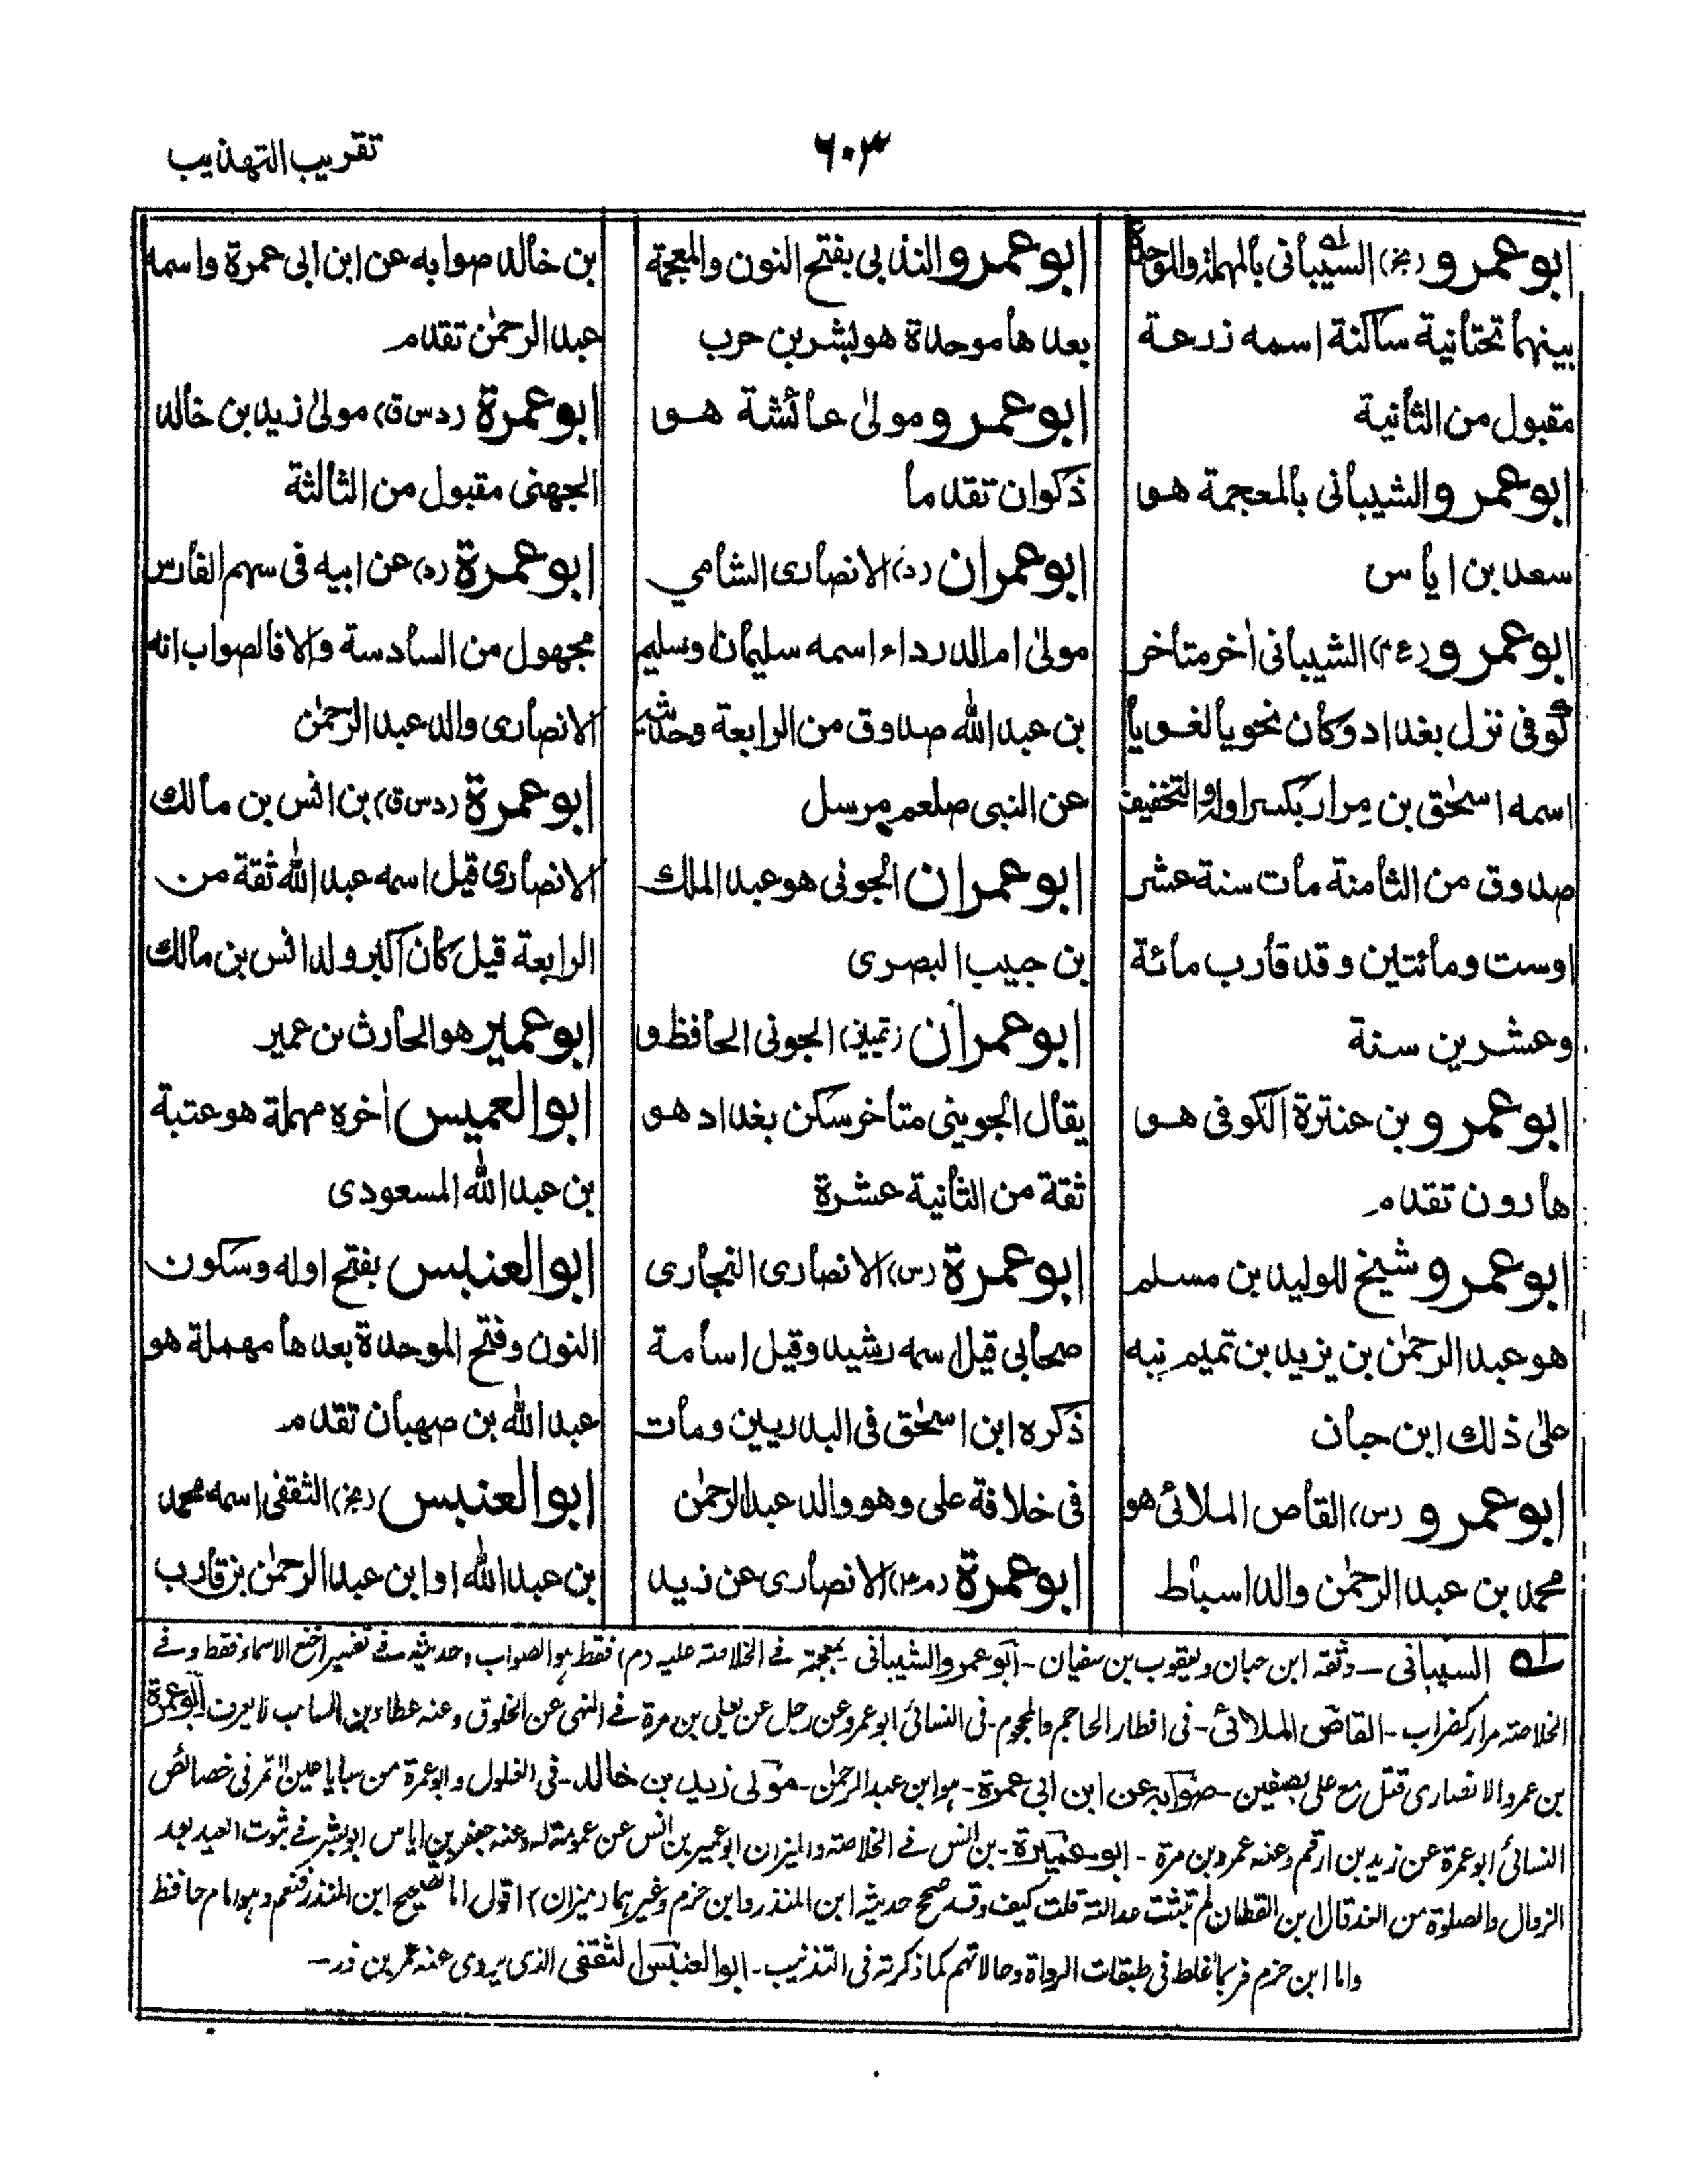 تقريب التهذيب
٦٠٣
ابو عمرو (بخ) السيبانى بالمهملة والموحدة
بينهما تحتانية ساكنة اسمه زرعة
مقبول من الثانية
ابو عمرو الشيبانى بالمعجمة هو
سعد بن اياس
ابو عمرو (م٤) الشيبانى اخر متأخر
كوفى نزل بغداد وكان نحويا لغويا
اسمه اسحٰق بن مرار بكسر اوله والتخفيف
صدوق من الثامنة مات سنة عشر
اوست ومائتين وقد قارب مائة
وعشرين سنة
ابو عمرو بن عنترة الكوفى هو
هارون تقدم
ابو عمرو شيخ للوليد بن مسلم
هو عبد الرحمٰن بن يزيد بن تميم نبه
علىٰ ذلك ابن حبان
ابو عمرو (س) القاص الملائى هو
محمد بن عبد الرحمٰن والد اسباط
ابو عمرو الندبى بفتح النون والمعجمة
بعدها موحدة هو بشر بن حرب
ابو عمرو مولىٰ عائشة هو
ذكوان تقدما
ابو عمران (د) الانصارى الشامي
مولىٰ ام الدرداء اسمه سليمان او سليم
بن عبد الله صدوق من الرابعة وحديثه
عن النبى صلعم مرسل
ابو عمران الجونى هو عبد الملك
بن حبيب البصرى
ابو عمران (تمييز) الجونى الحافظ و
يقال الجوينى متأخر سكن بغداد هو
ثقة من الثانية عشرة
ابو عمرة (س) الانصارى النجارى
صحابى قيل اسمه رشيد وقيل اسامة
ذكره ابن اسحٰق فى البدريين ومات
فى خلافة على وهو والد عبد الرحمٰن
ابو عمرة الانصارى عن زيد
بن خالد صوابه عن ابن ابى عمرة واسمه
عبد الرحمٰن تقدم
ابو عمرة (دس ق) مولىٰ زيد بن خالد
الجهنى مقبول من الثالثة
ابو عمرة (د) عن ابيه فى سهم الفارس
مجهول من السادسة والا فالصواب انه
الانصارى والد عبد الرحمٰن
ابو عمرة (دس ق) بن انس بن مالك
الانصارى قيل اسمه عبد الله ثقة من
الرابعة قيل كان اكبر ولد انس بن مالك
ابو عمير هو الحارث بن عمير
ابو العميس اخره مهملة هو عتبة
بن عبد الله المسعودى
ابو العنبس بفتح اوله وسكون
النون وفتح الموحدة بعدها مهملة هو
عبد الله بن صهبان تقدم
ابو العنبس (بخ) الثقفى اسمه محمد
بن عبد الله او ابن عبد الرحمٰن بن قارب
له السيبانى – وثقه ابن حبان ويعقوب بن سفيان - ابو عمرو الشيبانى بمعجمة فے الخلاصة عليه (م) فقط هو الصواب وحديثه فے تفسير اخنع الاسماء فقط وفے
الخلاصة مرار كضراب - القاص الملائى - فى افطار الحاجم والمحجوم - فى النسائى ابو عمرو عن رجل عن يعلى بن مرة فے النهى عن الخلوق وعنه عطاء بن السائب لا يعرف ابو عمرة
بن عمرو الانصارى قتل مع على بصفين - صوابه عن ابن ابى عمرة - هو ابن عبد الرحمٰن - مولى زيد بن خالد - فى الغلول وابو عمرة من سبايا عين التمر فى خصائص
النسائى ابو عمرة عن زيد بن ارقم وعنه عمرو بن مرة - ابو عميرة - بن انس فے الخلاصة والميزان ابو عمير بن انس عن عمومة له وعنه جعفر بن اياس ابو بشر فے ثبوت العيد بعد
الزوال والصلوة من الغد قال ابن القطان لم تثبت عدالته قلت كيف وقد صحح حديثه ابن المنذر وابن حزم وغيرهما (ميزان) اقول اما تصحيح ابن المنذر فنعم وهو امام حافظ
واما ابن حزم فربما غلط فى طبقات الرواة وحالاتهم كما ذكرته فى التذنيب - ابو العنبس الثقفى الذى يروى عنه عمر بن ذر –